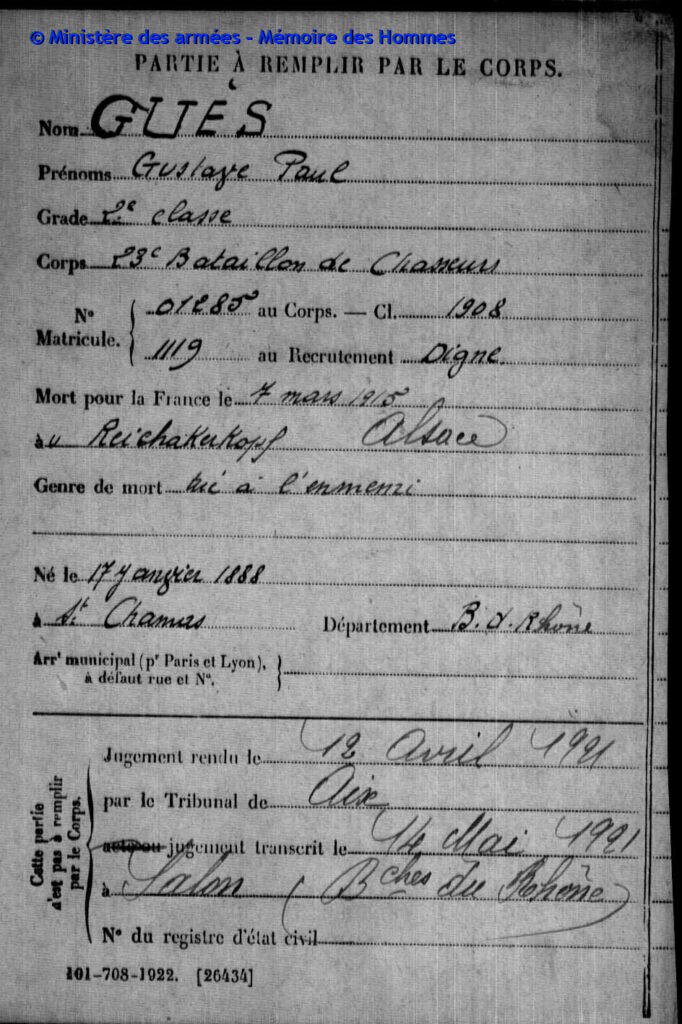 © Ministère des armées - Mémoire des Hommes
PARTIE À REMPLIR PAR LE CORPS.
Nom GUÈS
Prénoms Gustave Paul
Grade 2e classe
Corps 23e Bataillon de Chasseurs
N° Matricule. { 01285 au Corps. — Cl. 1908
1119 au Recrutement Digne
Mort pour la France le 7 mars 1915
à u Reichakerkopf Alsace
Genre de mort tué à l'ennemi
Né le 17 Janvier 1888
à St Chamas Département B. d. Rhône
Arrt municipal (pr Paris et Lyon), à défaut rue et N°. }
Cette partie n'est pas à remplir par le Corps.
Jugement rendu le 12 Avril 1921
par le Tribunal de Aix
acte ou jugement transcrit le 14 Mai 1921
à Salon (Bches du Rhône)
N° du registre d'état civil
101-708-1922. [26434]